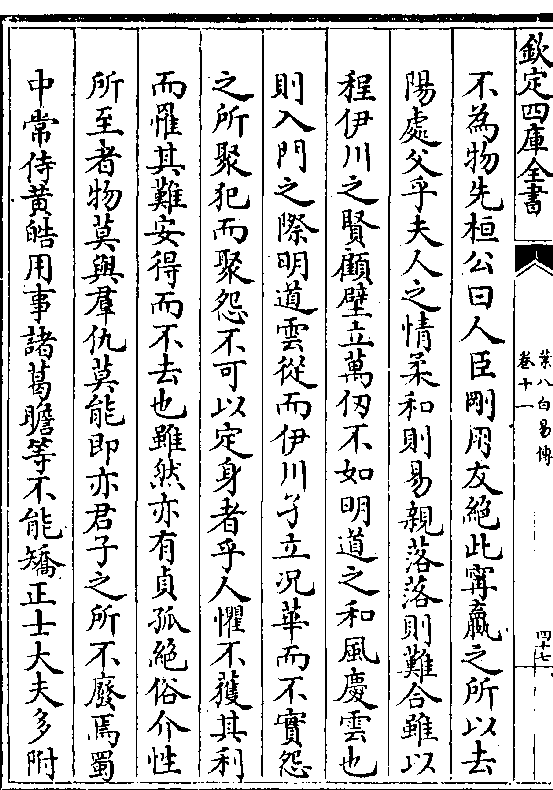 欽定四庫全書
葉八白易傳
卷十一
四十七
不為物先桓公曰人臣剛用友絕此寗嬴之所以去
陽處父乎夫人之情柔和則易親落落則難合雖以
程伊川之賢顧壁立萬仞不如明道之和風慶雲也
則入門之際明道雲從而伊川孑立況華而不實怨
之所聚犯而聚怨不可以定身者乎人懼不獲其利
而罹其難安得而不去也雖然亦有貞孤絕俗介性
所至者物莫與羣仇莫能即亦君子之所不廢焉蜀
中常侍黃皓用事諸葛瞻等不能矯正士大夫多附